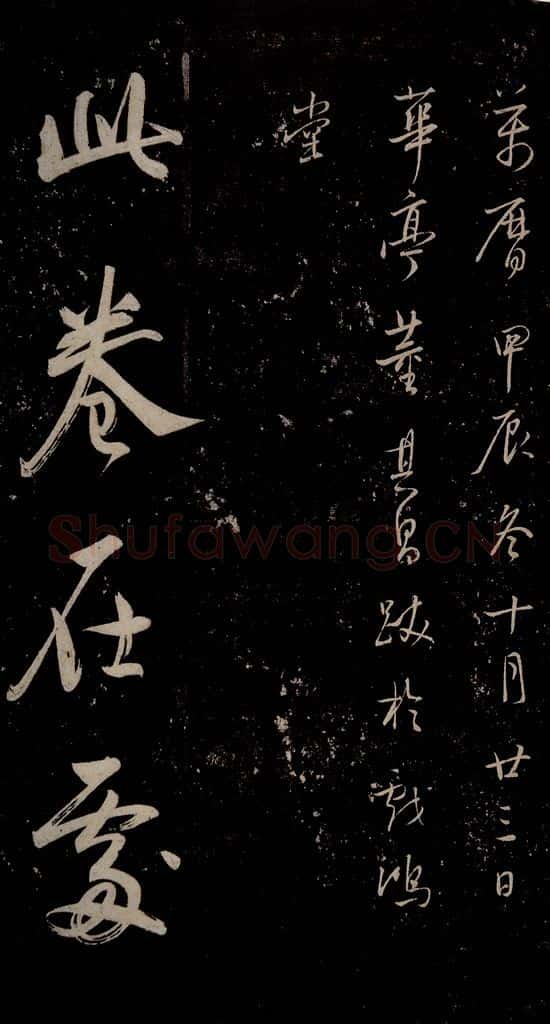 萬曆甲辰冬十月廿三日
華亭董其昌跋於戲鴻
堂
此卷在處
Shufawang.CN